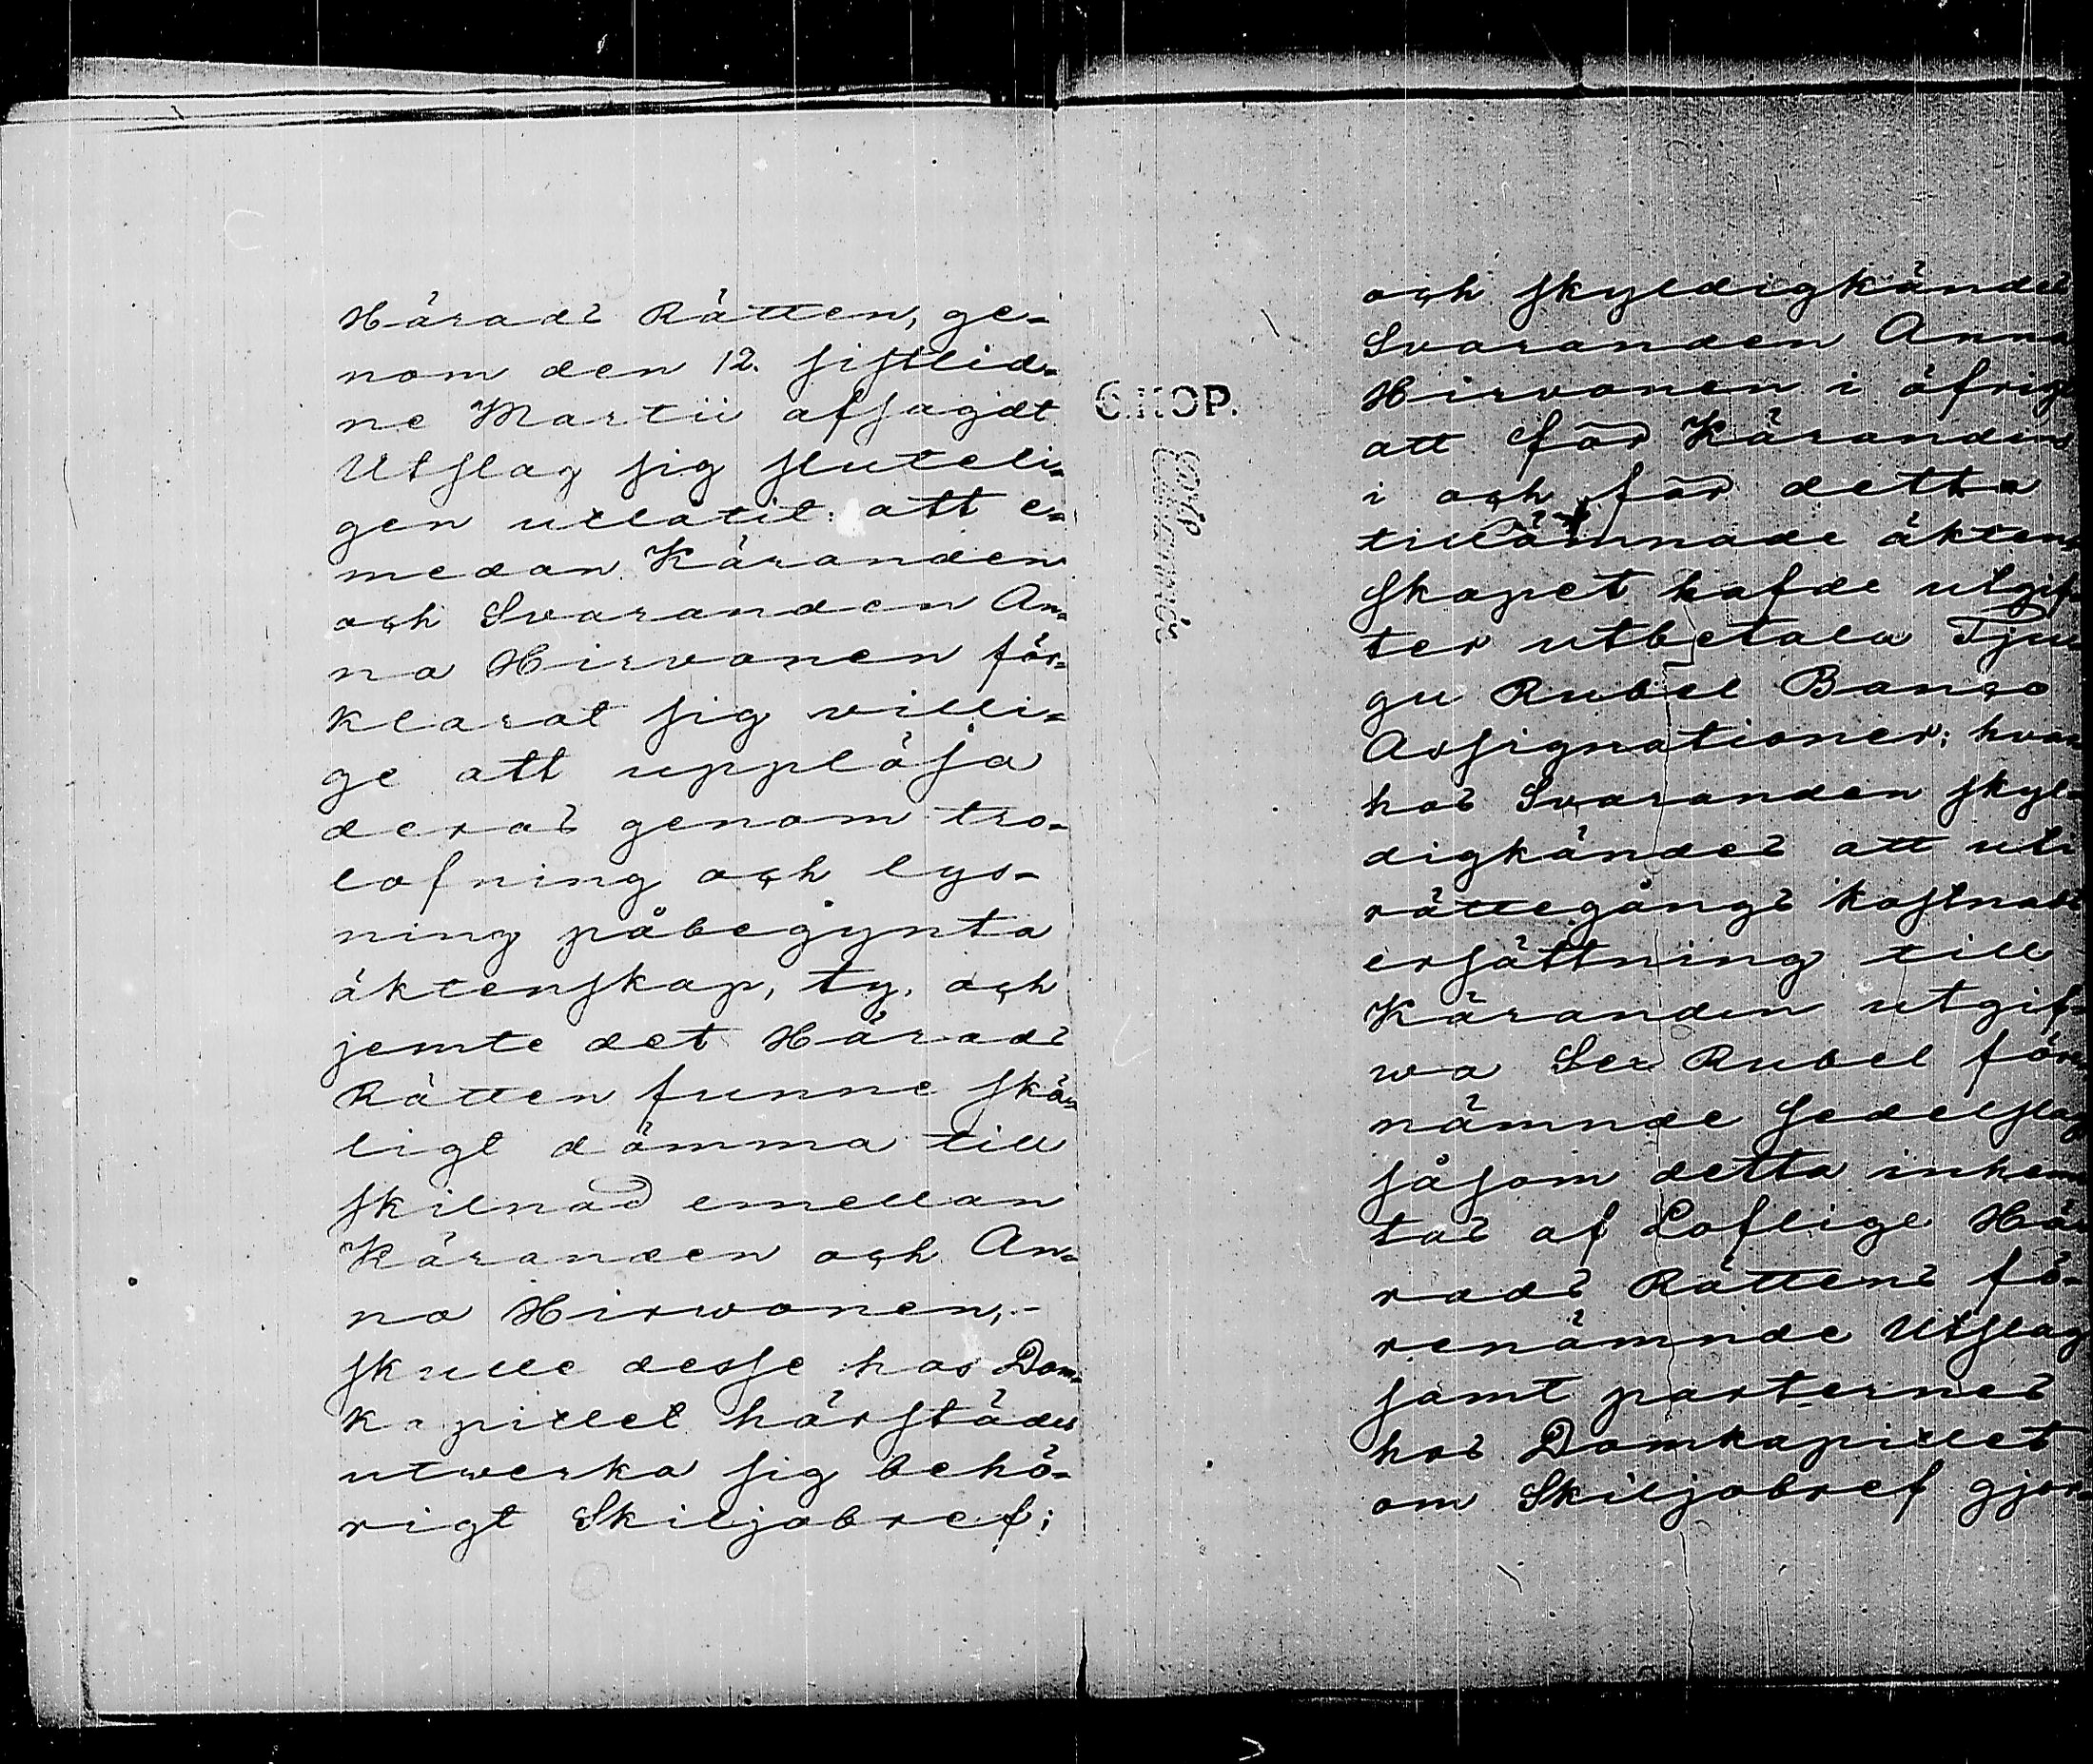 Härads Rätten, ge-
nom den 12. sistlid-
ne Martii afsagdt
Utslag sig sluteli-
gen utlåtit: att e-
medan Käranden
och Svaranden An-
na Hirvonen för-
klarat sig villi-
ge att upplösa
deras genom tro-
lofning och lys-
ning påbegynta
äktenskap, ty, och
jemte det Härads
Rätten funne skä-
ligt dömma till
skilnad emellan
Käranden och An-
na Hirwonen,-
skulle desse hos Dom-
kapitlet härstädes
utwerka sig behö-
rigt Skiljobref;
6. KOP.
och skyldigkändes
Svaranden Anna
Hirvonen i öfrigt
att för Kärandens
i och för detta
tillämnade äkten-
skapet hafde utgif-
ter utbetala Tju-
gu Rubel Banco
Assignationer; hvar-
hos Svaranden skyl-
digkändes att uti
rättegångs kostnads
ersättning till
Käranden utgif-
wa Sex Rubel för-
nämnde sedelslag
såsom detta inhem-
tas af Loflige Hä-
rads Rättens fö-
renämnde Utslag
samt parternes
hos Domkapitlet
om Skiljobref gjor-